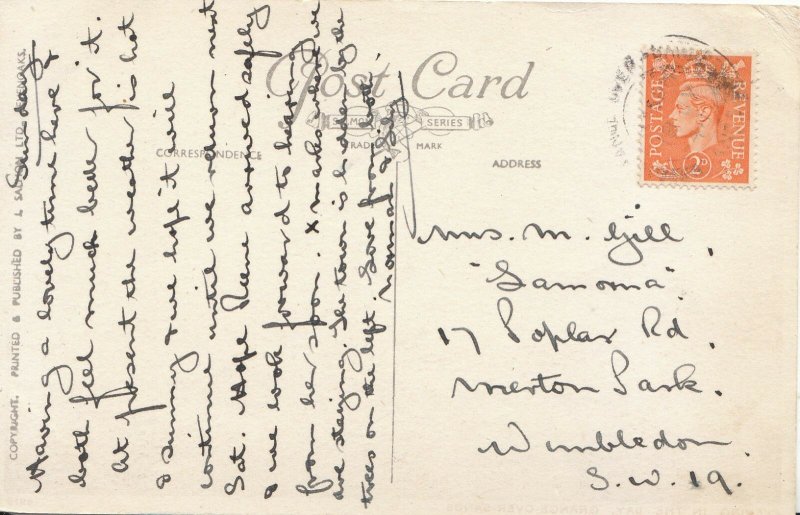 COPYRIGHT. PRINTED & PUBLISHED BY J. SALMON LTD. SEVENOAKS.
Post Card
SALMON SERIES
TRADE MARK
CORRESPONDENCE
ADDRESS
Sunday
Having a lovely time here &
both feel much better for it.
At present the weather is hot
& sunny & we hope it will
continue until we return next
Sat. Hope Rene arrived safely
& we look forward to hearing
from her soon. X marks where we
are staying. The town is hidden by the
trees on the left. Love from both,
Norman &
POSTAGE
REVENUE
2D
Mrs. M. Gill,
"Samoma",
17 Poplar Rd,
Merton Park.
Wimbledon.
S.W. 19.